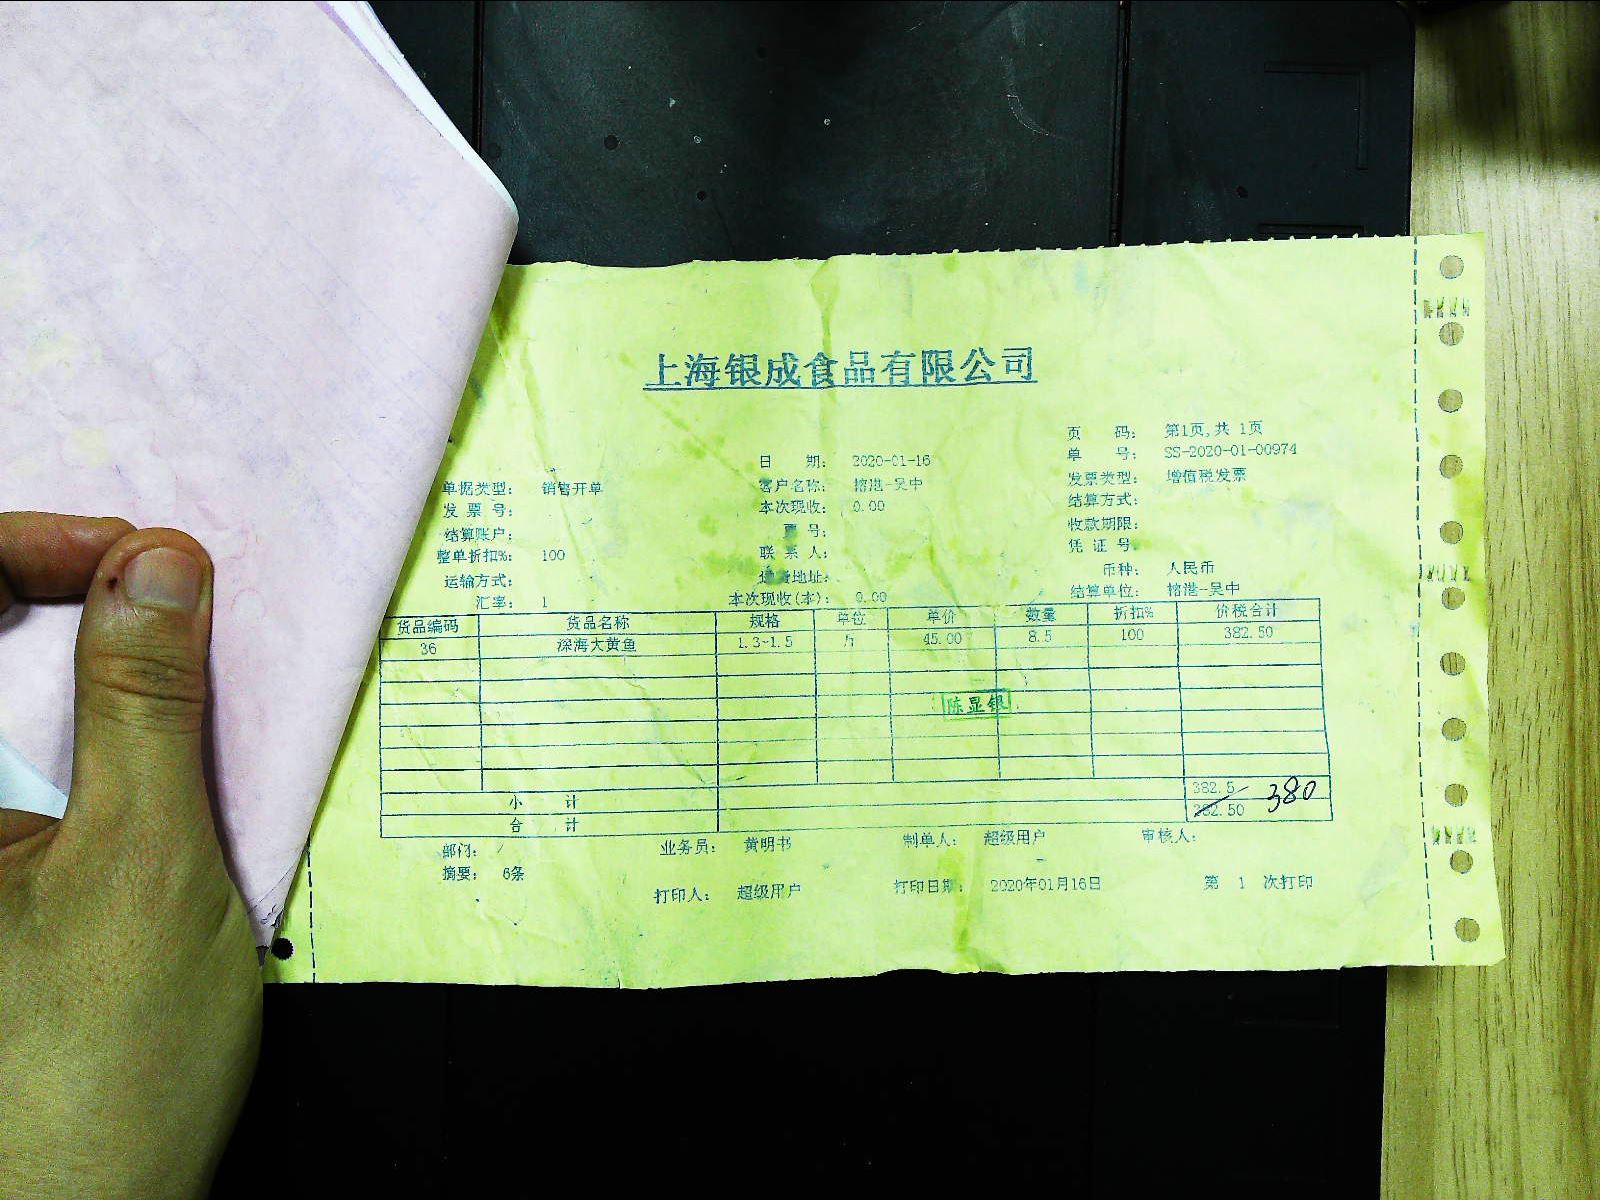 上海银成食品有限公司
页 码： 第1页,共 1页
日 期： 2020-01-16 单 号： SS-2020-01-00974
单据类型： 销售开单 客户名称： 榕港-吴中 发票类型： 增值税发票
发 票 号： 本次现收： 0.00 结算方式：
结算账户： 票 号： 收款期限：
整单折扣%： 100 联 系 人： 凭 证 号：
运输方式： 地址： 币种： 人民币
汇率： 1 本次现收(本)： 0.00 结算单位： 榕港-吴中
货品编码 货品名称 规格 单位 单价 数量 折扣% 价税合计
36 深海大黄鱼 1.3~1.5 斤 45.00 8.5 100 382.50
陈显银
小 计 382.5
合 计 382.50 380
部门： 业务员： 黄明书 制单人： 超级用户 审核人：
摘要： 6条
打印人： 超级用户 打印日期： 2020年01月16日 第 1 次打印